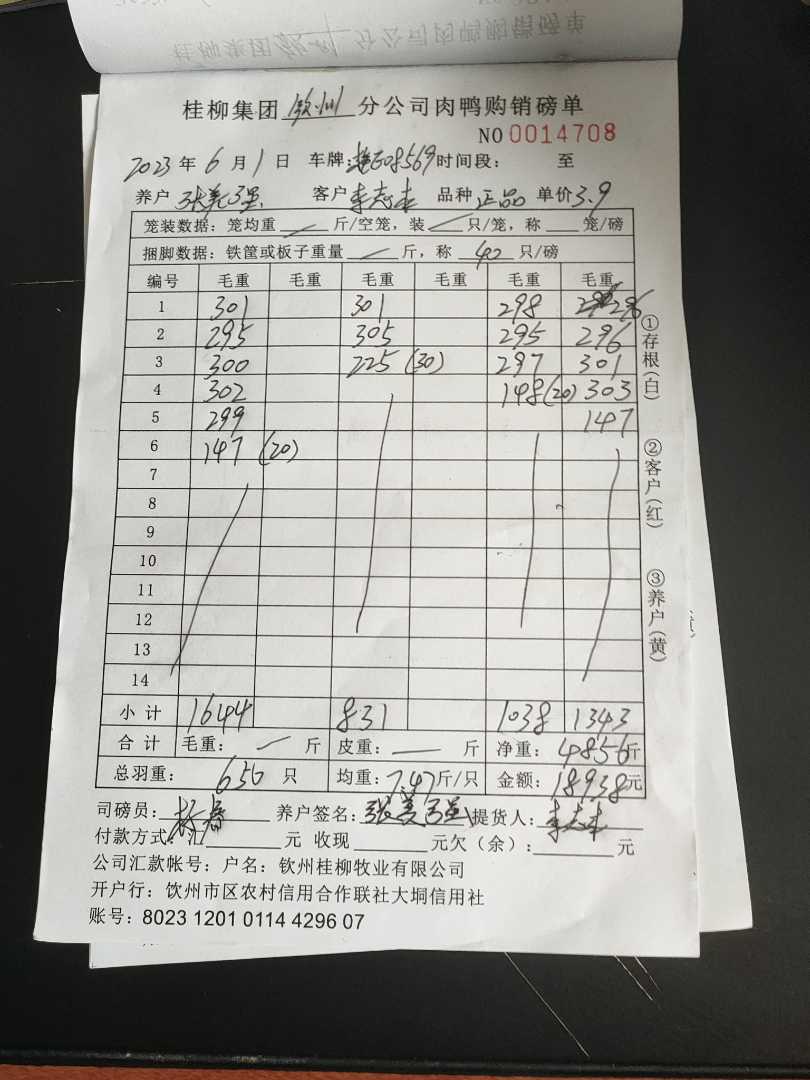 桂柳集团 钦州 分公司肉鸭购销磅单
NO 0014708
2023 年 6 月 1 日 车牌: 桂E08569 时间段: 至
养户 张美强 客户 李志丰 品种 正品 单价 3.9
笼装数据: 笼均重 斤/空笼, 装 只/笼, 称 笼/磅
捆脚数据: 铁筐或板子重量 斤, 称 40 只/磅
编号 毛重 毛重 毛重 毛重 毛重 毛重
1 301 301 298 296
2 295 305 295 296
3 300 225 (30) 297 301
4 302 148 (20) 303
5 299 147
6 147 (20)
7
8
9
10
11
12
13
14
小计 1644 831 1038 1343
合计 毛重: 斤 皮重: 斤 净重: 4856 斤
总羽重: 650 只 均重: 7.47 斤/只 金额: 18938 元
司磅员: 养户签名: 张美强 提货人: 李志丰
付款方式: 汇 元 收现 元欠(余): 元
公司汇款帐号: 户名: 钦州桂柳牧业有限公司
开户行: 饮州市区农村信用合作联社大垌信用社
账号: 8023 1201 0114 4296 07
①存根(白)
②客户(红)
③养户(黄)